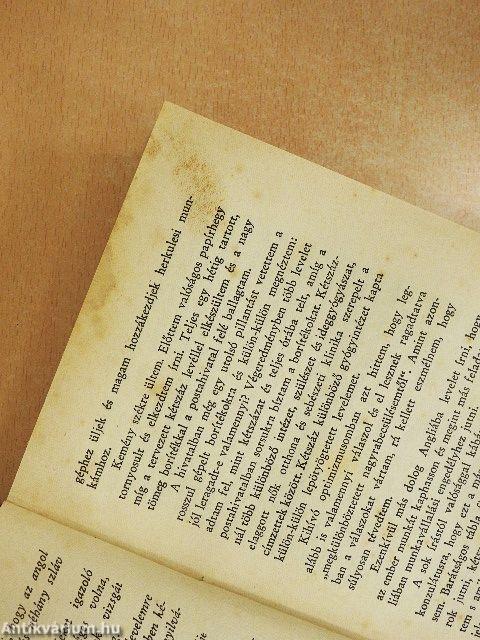 géphez üljek és magam hozzákezdjek herkulesi mun-
kámhoz.
Kemény székre ültem. Előttem valóságos papírhegy
tornyosult és elkezdtem írni. Teljes egy hétig tartott,
míg a tervezett kétszáz levéllel elkészültem és a nagy
tömeg borítékkal a postahivatal felé ballagtam.
A hivatalban még egy utolsó pillantást vetettem a
rosszul gépelt borítékokra és külön-külön megnéztem:
jól leragadt-e valamennyi? Végeredményben több levelet
adtam fel, mint kétszázat és teljes órába telt, amíg a
postahivatalban sorsukra bíztam a borítékokat. Kétszáz-
nál több különböző intézet, szülészet és ideggyógyászat,
elaggott nők otthona és sebészeti klinika szerepelt a
címzettek között. Kétszáz különböző gyógyintézet kapta
külön-külön lepötyögtetett levelemet.
Kihívó optimizmusomban azt hittem, hogy leg-
alább is valamennyi válaszol és el lesznek ragadtatva
„megkülönböztetett nagyrabecsülésemtől". Amint azon-
ban a válaszokat vártam, rá kellett eszmélnem, hogy
súlyosan tévedtem.
Ezenkívül más dolog Angliába levelet írni, hogy
az ember munkát kaphasson és megint más
liában munkavállalási engedélyhez jutni.
A sok írástól valósággal
konzulátusra, hogy ezt a
sem. Barátságos tábla
rok jutni,
hogy az angol
néhány szláv
igazoló
volna,
vizigát
Antikvárium.hu